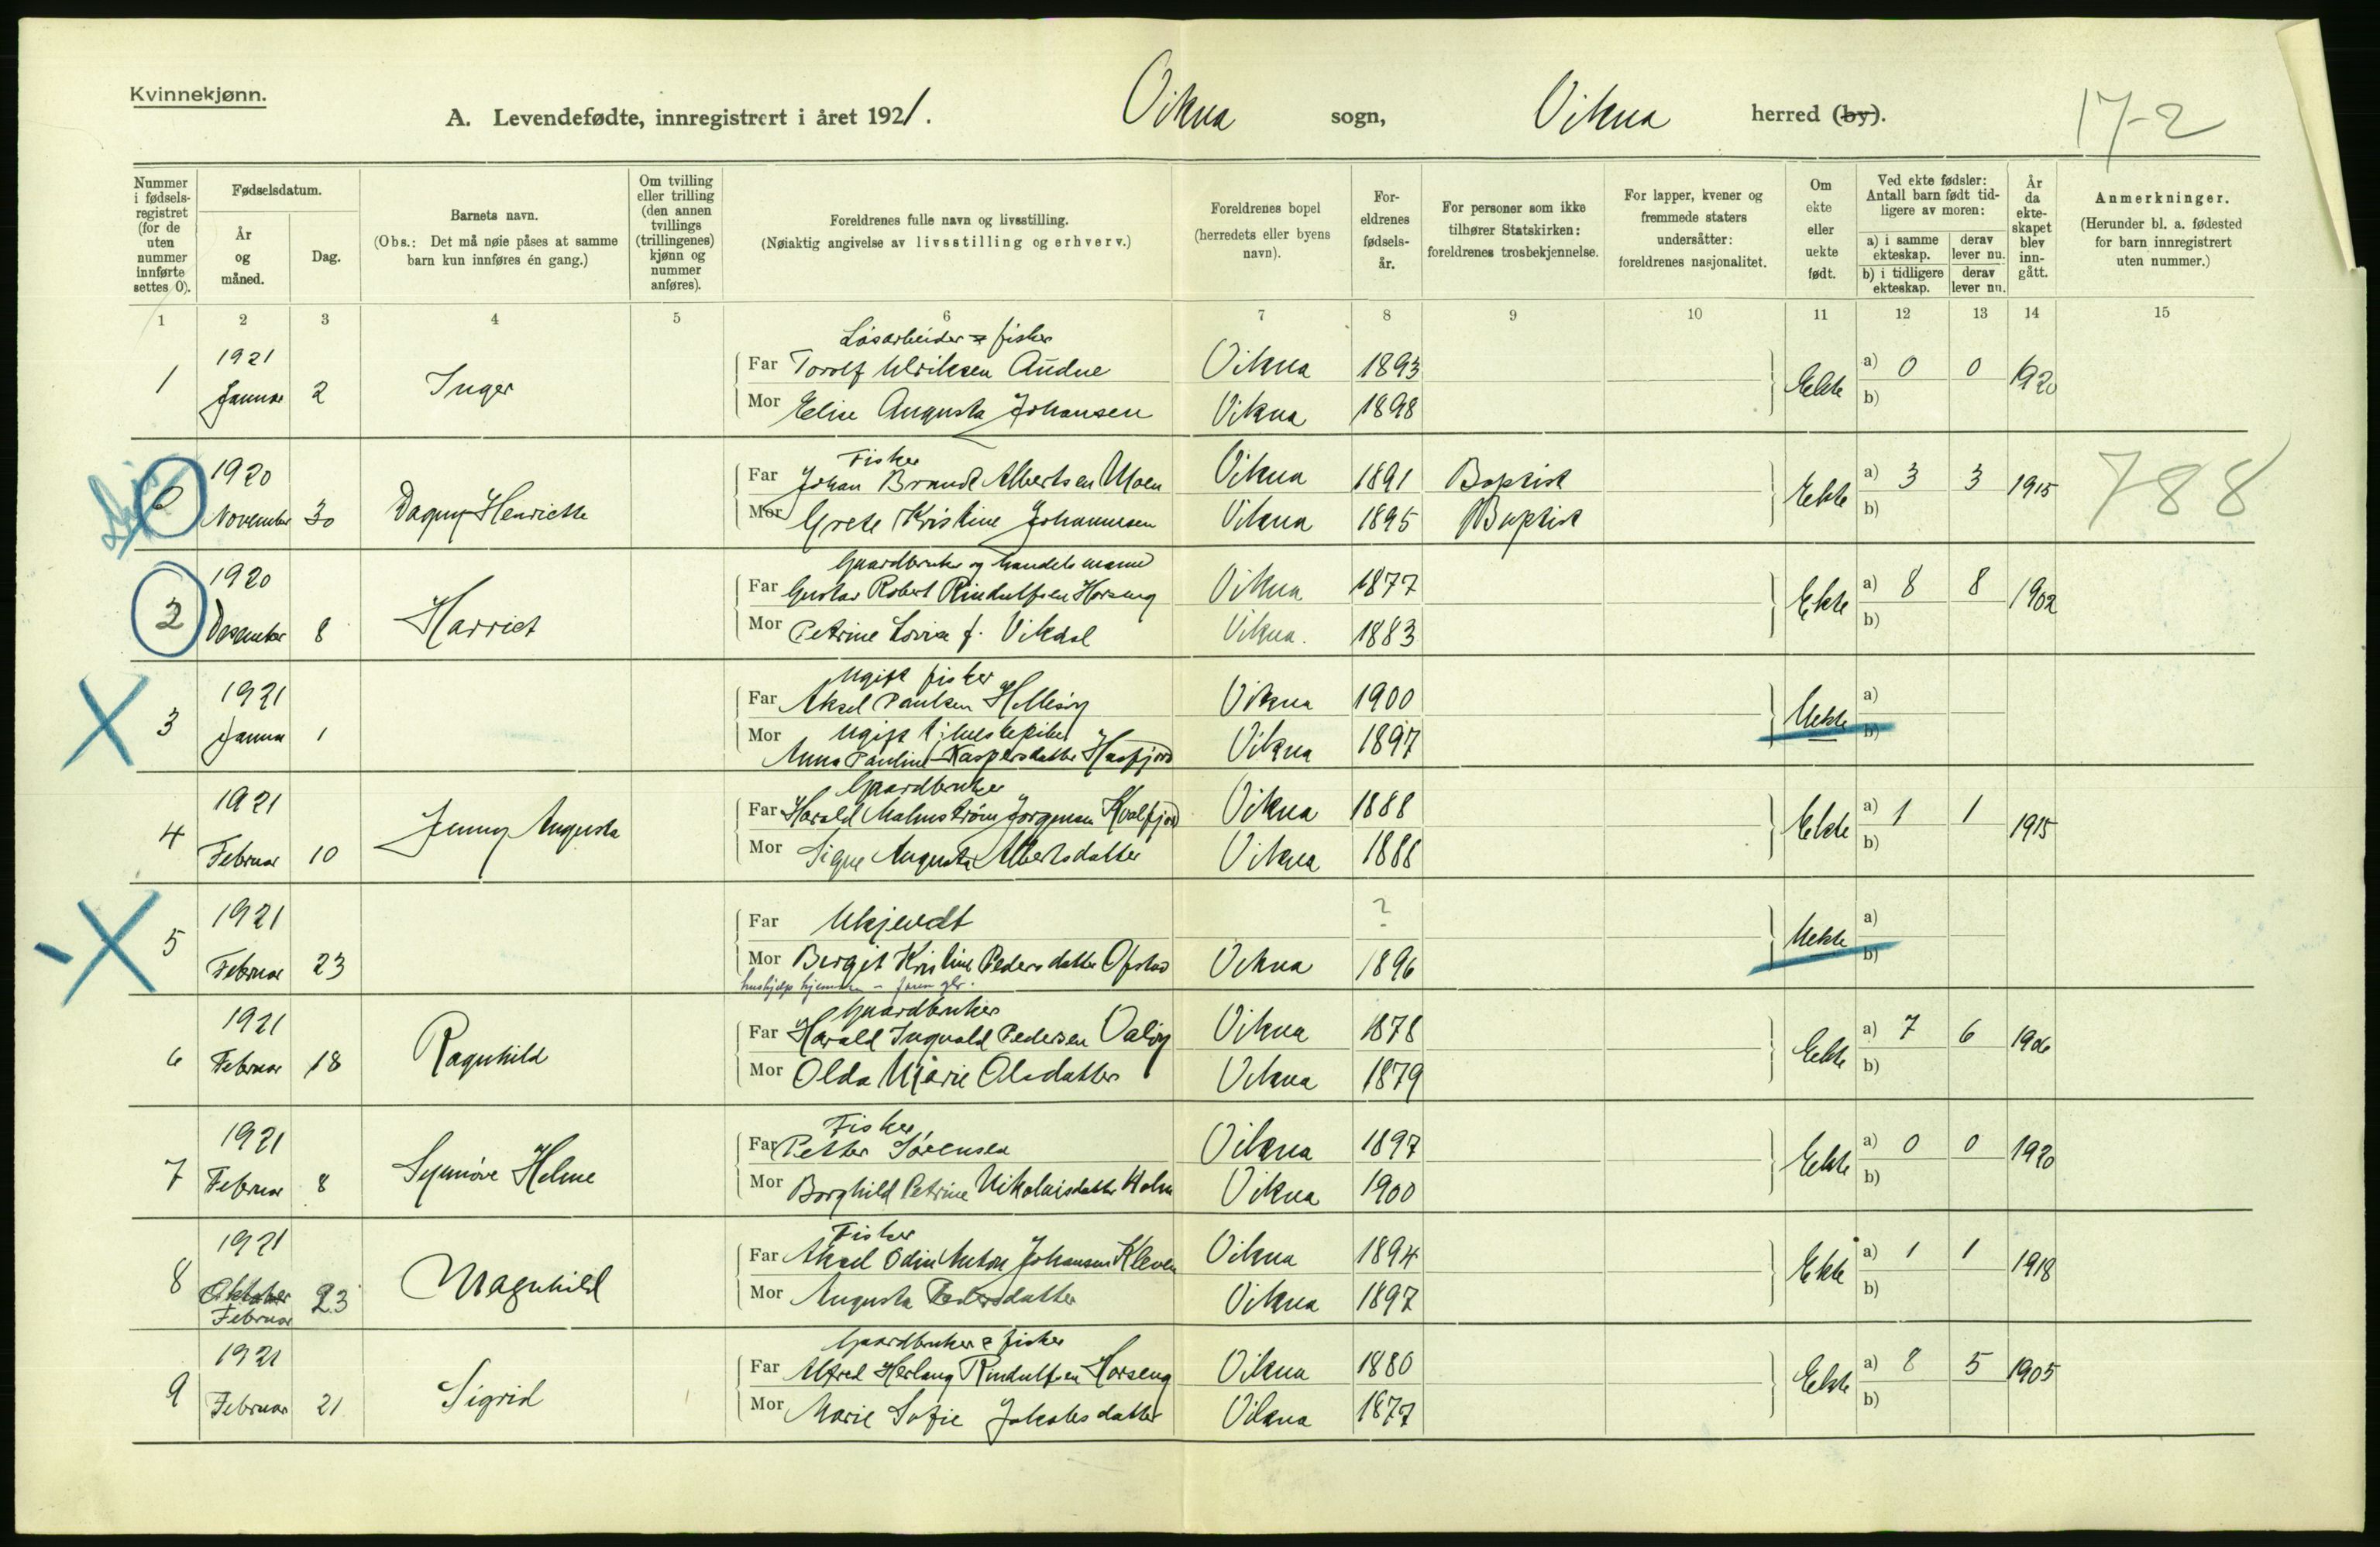 Kvinnekjønn.
A. Levendefødte, innregistrert i året 1921. Vikna sogn, Vikna herred (by). 17-2
Nummer i fødselsregistret (for de uten nummer innførte settes 0).
Fødselsdatum.
År og måned.
Dag.
Barnets navn.
(Obs.: Det må nøie påses at samme barn kun innføres én gang.)
Om tvilling eller trilling (den annen tvillings (trillingenes) kjønn og nummer anføres).
Foreldrenes fulle navn og livsstilling.
(Nøiaktig angivelse av livsstilling og erhverv.)
Foreldrenes bopel (herredets eller byens navn).
Foreldrenes fødselsår.
For personer som ikke tilhører Statskirken: foreldrenes trosbekjennelse.
For lapper, kvener og fremmede staters undersåtter: foreldrenes nasjonalitet.
Om ekte eller uekte født.
Ved ekte fødsler: Antall barn født tidligere av moren:
a) i samme ekteskap. derav lever nu.
b) i tidligere ekteskap. derav lever nu.
År da ekteskapet blev inngått.
Anmerkninger.
(Herunder bl. a. fødested for barn innregistrert uten nummer.)
1 2 3 4 5 6 7 8 9 10 11 12 13 14 15
Løsarbeider = fisker
1 1921 Januar 2 Inger Far Torolf Ulriksen Audne Vikna 1893 Ekte a) 0 0 1920
Mor Elise Augusta Johansen Vikna 1898 b)
Fisker
0 1920 November 30 Dagny Henriette Far Johan Brandt Albertsen Moen Vikna 1891 Baptist Ekte a) 3 3 1915 788
Mor Grete Kristine Johannesen Vikna 1895 Baptist b)
Gaardbruker og handelsmann
2 1920 Desember 8 Harriet Far Gustav Robert Rindulfsen Horseng Vikna 1877 Ekte a) 8 8 1902
Mor Petrine Lovise f. Vikdal Vikna. 1883 b)
Ugift fisker
3 1921 Januar 1 Far Aksel Paulsen Vikna 1900 Uekte a)
Mor Ugift
Anna Pauline Kaspersdatter Vikna 1897 b)
Gaardbruker
4 1921 Februar 10 Jenny Augusta Far Harald Malmstrøm Jørgensen Kvalfjord Vikna 1888 Ekte a) 1 1 1915
Mor Signe Augusta Albertsdatter Vikna 1888 b)
5 1921 Februar 23 Far Ukjendt ? Uekte a)
Mor Bergit Kristine Pedersdatter Ofstad Vikna 1896 b)
Gaardbruker
6 1921 Februar 18 Ragnhild Far Harald Ingvald Pedersen Valøy Vikna 1878 Ekte a) 7 6 1906
Mor Olda Marie Olsdatter Vikna 1879 b)
Fisker
7 1921 Februar 8 Synnøve Helene Far Petter Sørensen Vikna 1897 Ekte a) 0 0 1920
Mor Borghild Petrine Nikolaisdatter Holm Vikna 1900 b)
Fisker
8 1921 Oktober Februar 23 Magnhild Far Aksel Odin Anton Johansen Kleven Vikna 1894 Ekte a) 1 1 1918
Mor Augusta Pedersdatter Vikna 1897 b)
Gaardbruker = fisker
9 1921 Februar 21 Sigrid Far Alfred Herlaug Rindulfsen Horseng Vikna 1880 Ekte a) 8 5 1905
Mor Marie Sofie Jakobsdatter Vikna 1877 b)